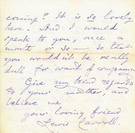 coming? It is so lovely
here. And I would
speak to you once a
month or so
you wouldn't be really
dull for want of company.
Give my kind regards
to your mother, and
believe me
your loving friend
Lewis Carroll.